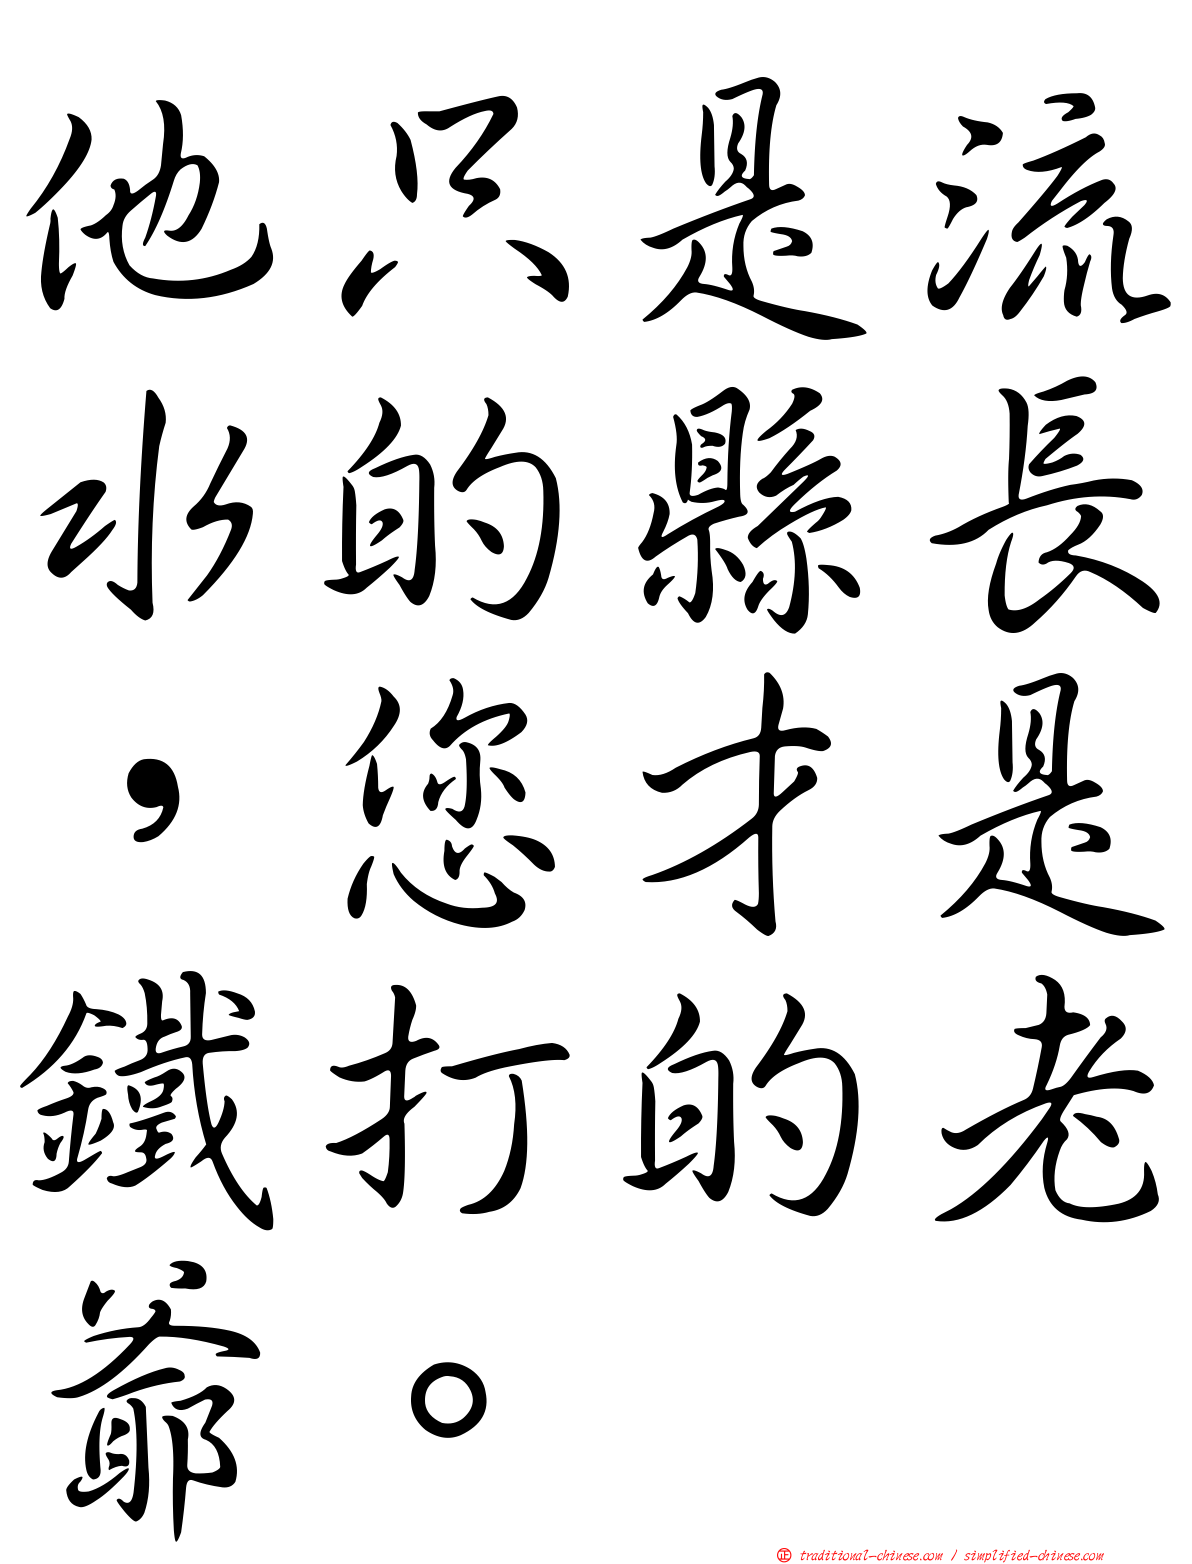 他只是流
水的縣長
，您才是
鐵打的老
爺。
正 traditional-chinese.com / simplified-chinese.com